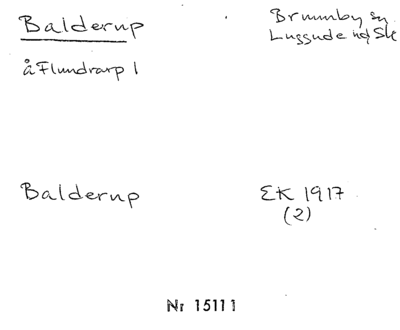 Balderup
Brunnby sn
Luggude hd Sk
å Flundrarp 1
Balderup
EK 1917
(2)
Nr 15111